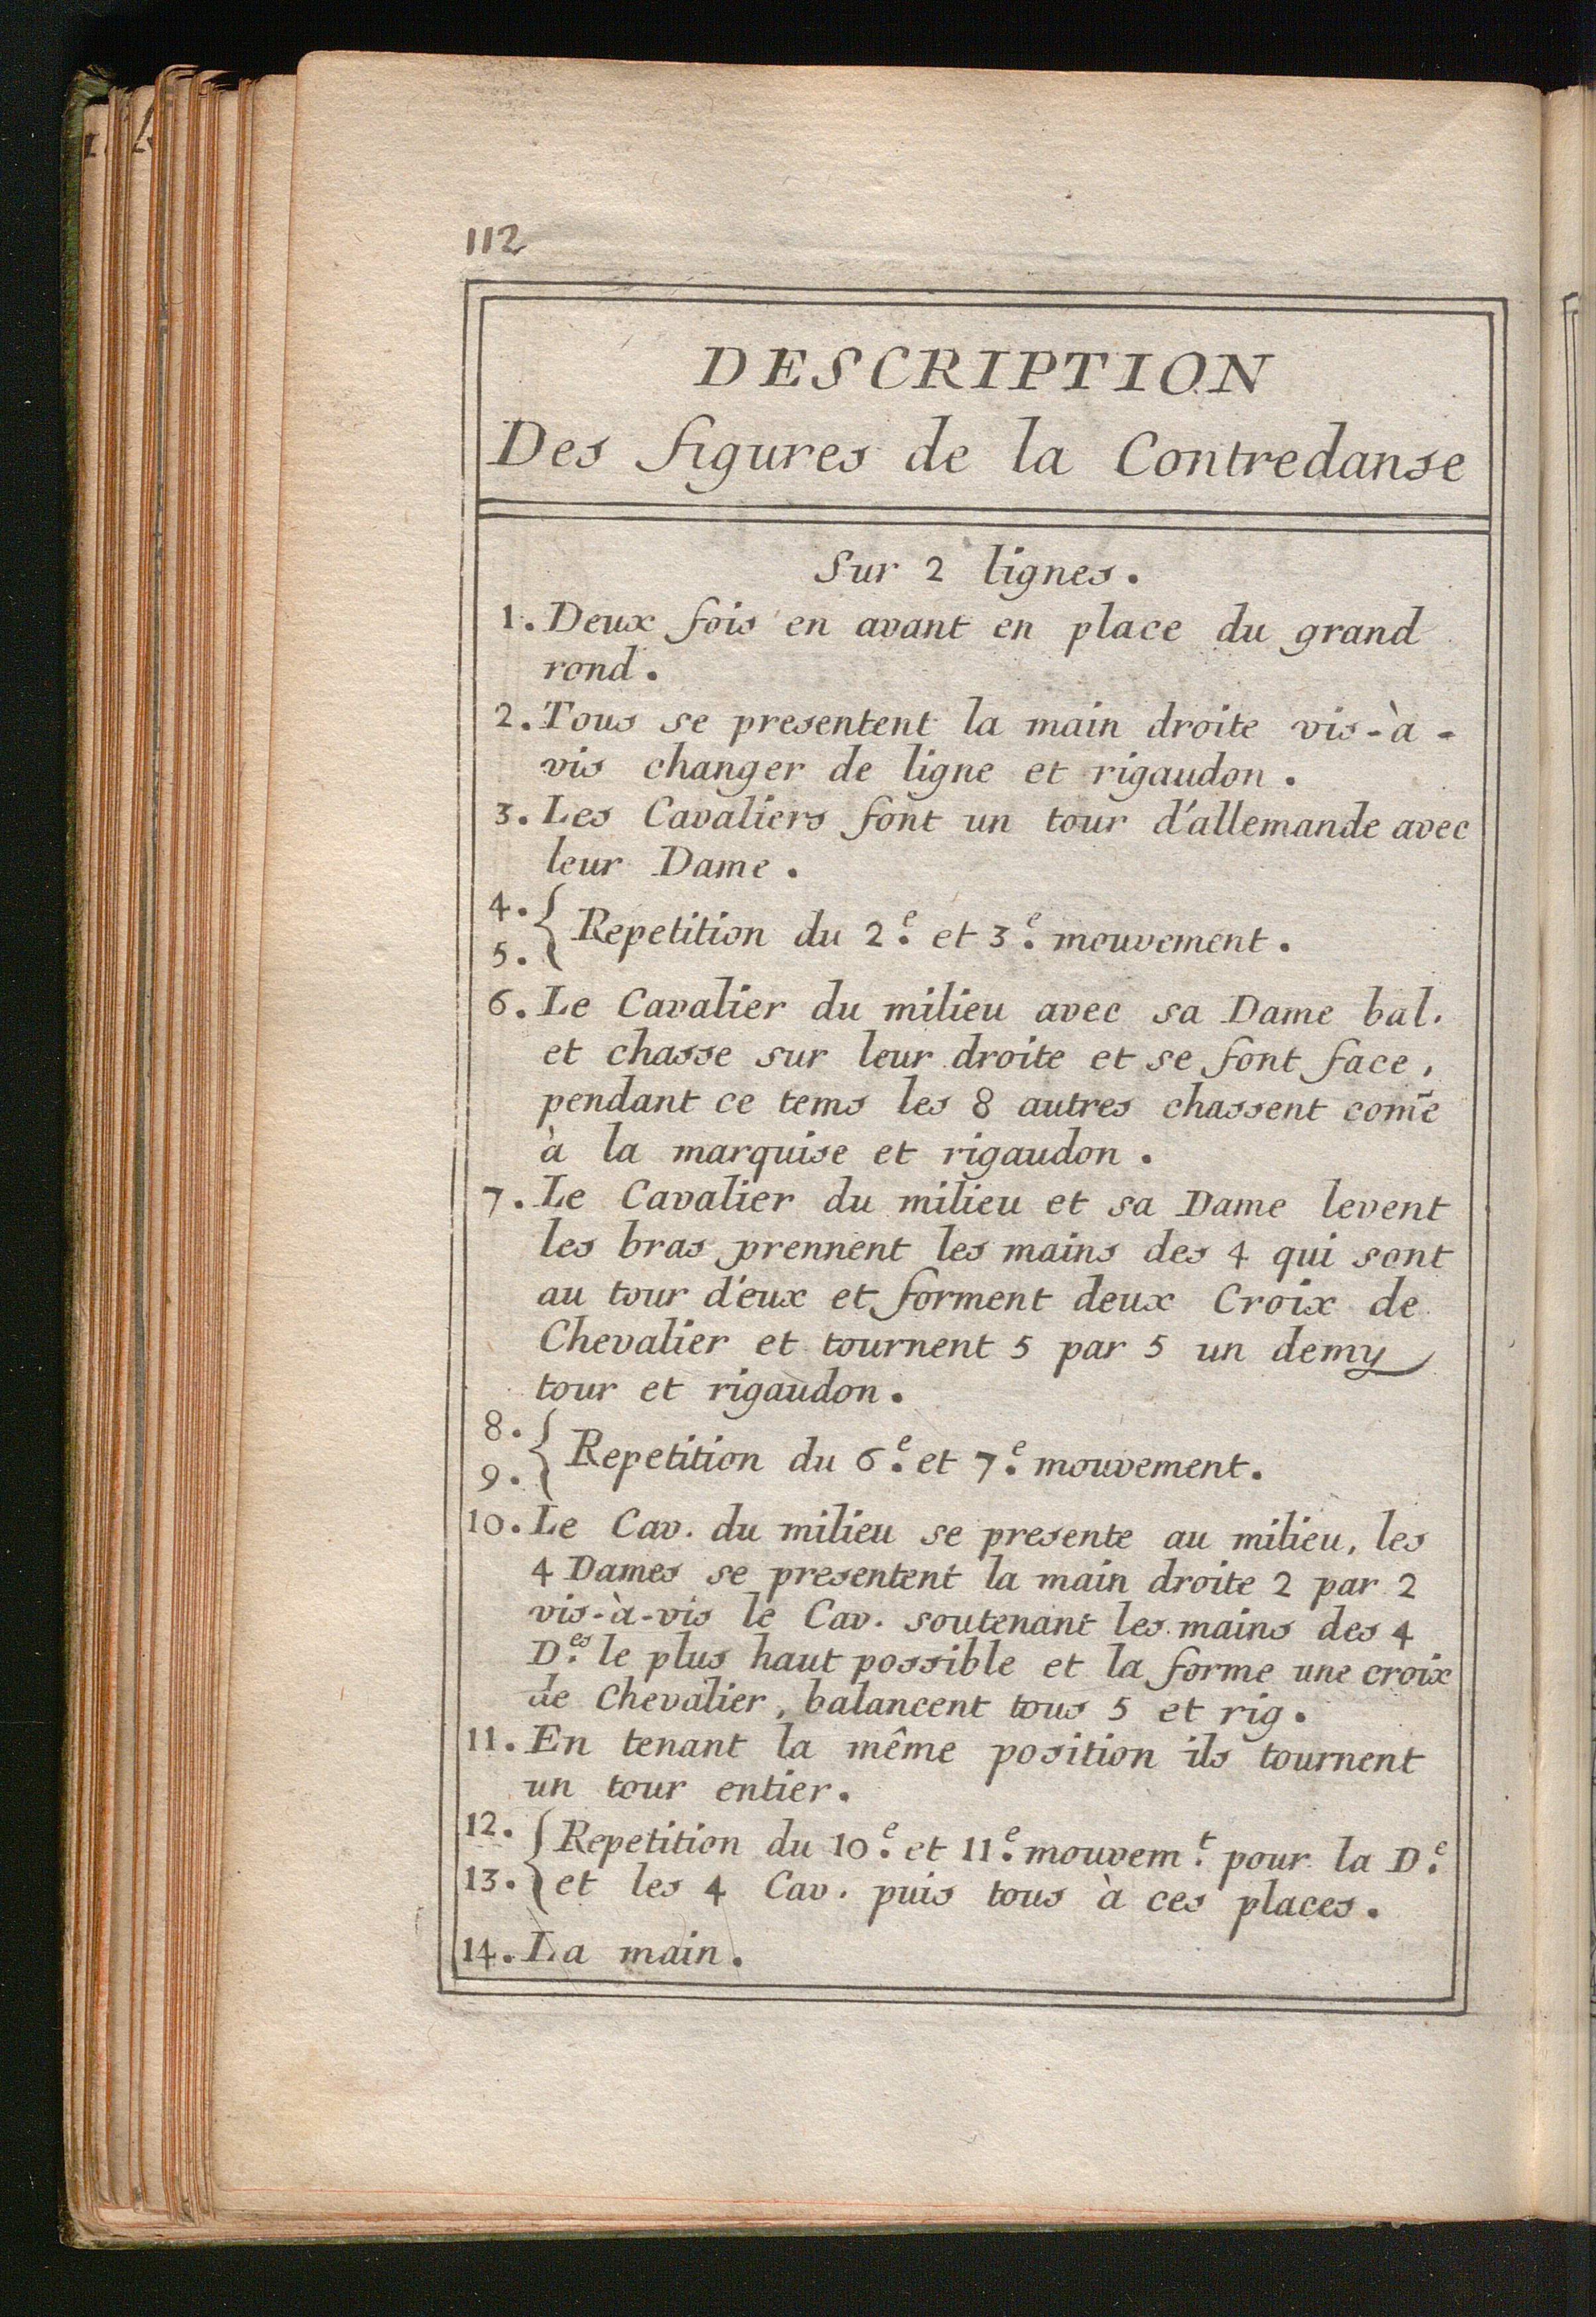 112
DESCRIPTION
Des figures de la Contredanse
Sur 2 lignes.
1. Deux fois en avant en place du grand
rond.
2. Tous se presentent la main droite vis-à-
vis changer de ligne et rigaudon.
3. Les Cavaliers font un tour d'allemande avec
leur Dame.
4.
5. { Repetition du 2.e et 3.e mouvement.
6. Le Cavalier du milieu avec sa Dame bal.
et chasse sur leur droite et se font face,
pendant ce tems les 8 autres chassent com̄e
à la marquise et rigaudon.
7. Le Cavalier du milieu et sa Dame levent
les bras prennent les mains des 4 qui sont
au tour d'eux et forment deux Croix de
Chevalier et tournent 5 par 5 un demy
tour et rigaudon.
8.
9. { Repetition du 6.e et 7.e mouvement.
10. Le Cav. du milieu se presente au milieu, les
4 Dames se presentent la main droite 2 par 2
vis-à-vis le Cav. soutenant les mains des 4
D.es le plus haut possible et la forme une croix
de Chevalier, balancent tous 5 et rig.
11. En tenant la même position ils tournent
un tour entier.
12. { Repetition du 10.e et 11.e mouvem.t pour la D.e
13. et les 4 Cav. puis tous à ces places.
14. La main.